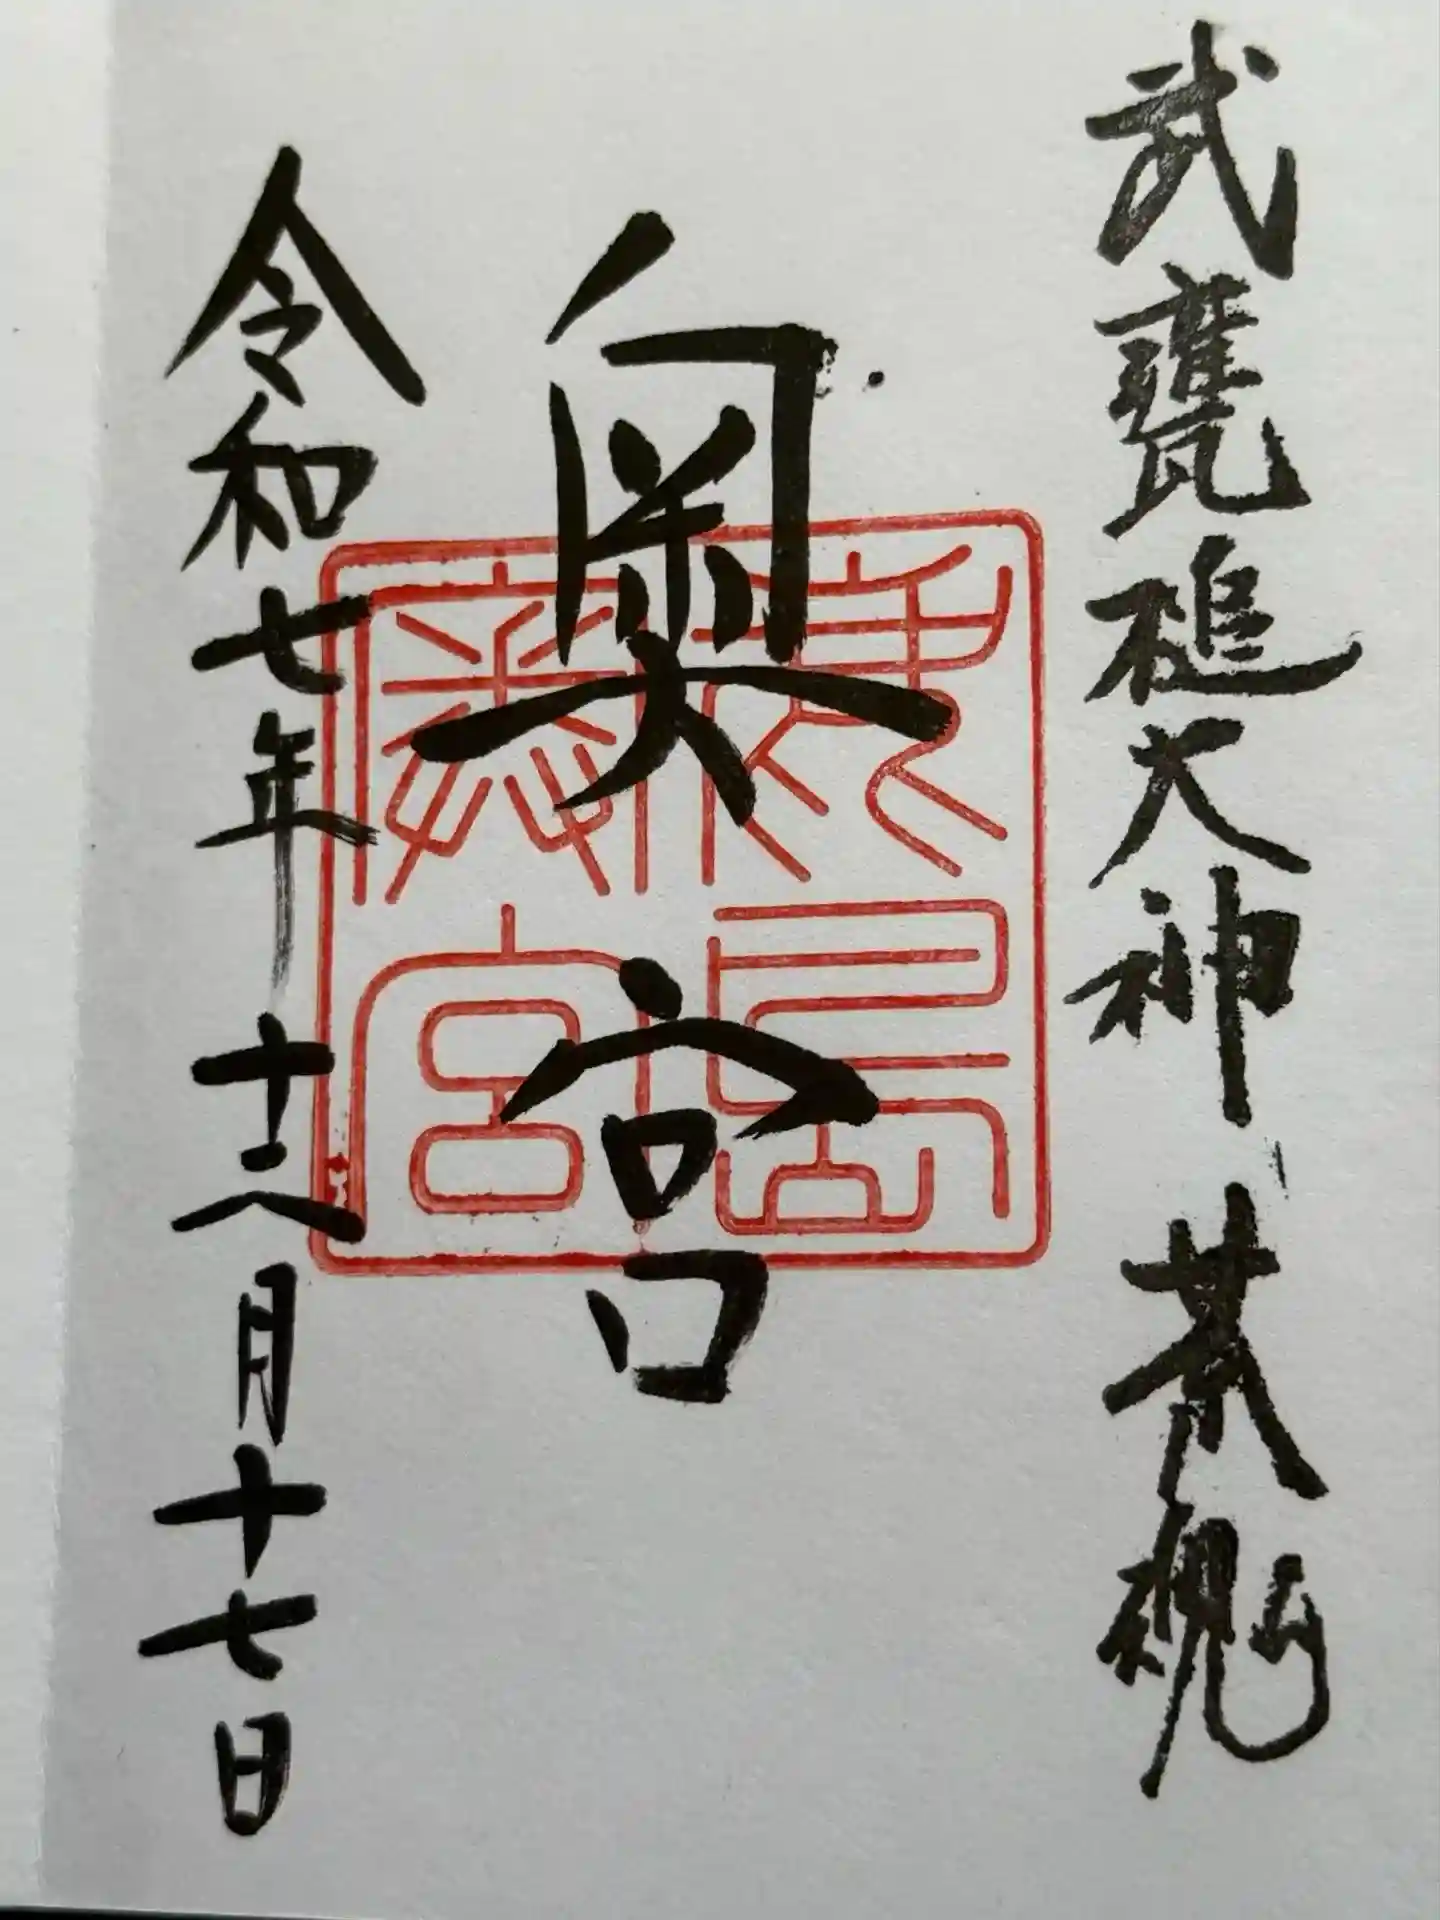 武甕槌大神 荒魂
奥宮
令和七年十二月十七日
鹿島
奥宮